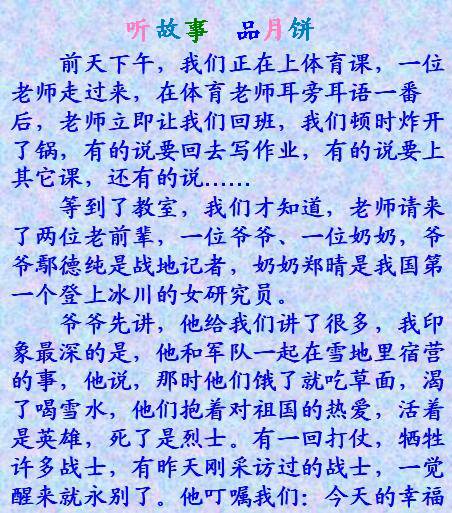 听故事 品月饼
前天下午，我们正在上体育课，一位
老师走过来，在体育老师耳旁耳语一番
后，老师立即让我们回班，我们顿时炸开
了锅，有的说要回去写作业，有的说要上
其它课，还有的说……
等到了教室，我们才知道，老师请来
了两位老前辈，一位爷爷、一位奶奶，爷
爷鄢德纯是战地记者，奶奶郑晴是我国第
一个登上冰川的女研究员。
爷爷先讲，他给我们讲了很多，我印
象最深的是，他和军队一起在雪地里宿营
的事，他说，那时他们饿了就吃草面，渴
了喝雪水，他们抱着对祖国的热爱，活着
是英雄，死了是烈士。有一回打仗，牺牲
许多战士，有昨天刚采访过的战士，一觉
醒来就永别了。他叮嘱我们：今天的幸福